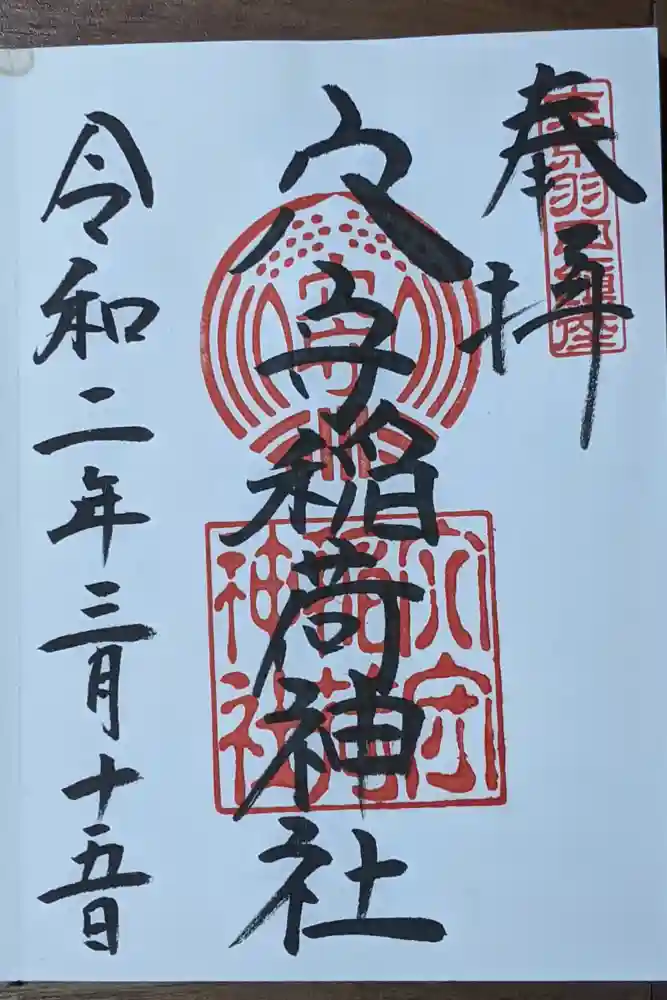 奉拝
東京羽田鎮座
穴守稲荷神社
穴守
穴守
稲荷
神社
令和二年三月十五日